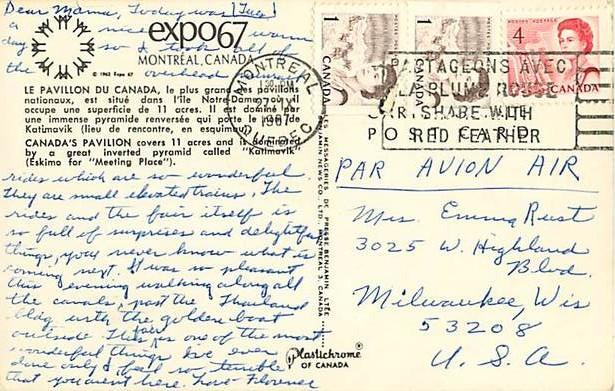 Dear Mama, Today was (Tues)
a nice warm
day so I took all of
the overhead
expo67
MONTRÉAL, CANADA
© 1963 Expo 67
LE PAVILLON DU CANADA, le plus grand des pavillons
nationaux, est situé dans l'île Notre-Dame, où il
occupe une superficie de 11 acres. Il est dominé par
une immense pyramide renversée qui porte le nom de
Katimavik (lieu de rencontre, en esquimau).
CANADA'S PAVILION covers 11 acres and is dominated
by a great inverted pyramid called "Katimavik"
(Eskimo for "Meeting Place").
rides which are so wonderful.
They are small elevated trains. The
rides and the fair itself is
so full of surprises and delightful
things, you never know what is
coming next. It was so pleasant
this evening walking along all
the canals, past the Thailand
bldg with the golden boat
outside. This fair is one of the most
wonderful things I've ever
done only I feel so terrible
that you aren't here. Love Florence
LES MESSAGERIES DE PRESSE BENJAMIN LTÉE
BENJAMIN NEWS CO., LTD., MONTREAL 3, CANADA
Plastichrome®
OF CANADA
1
CANADA
1
CANADA
4
POSTES POSTAGE
CANADA
MONTREAL
QUEBEC
27 IX
1967
PARTAGEONS AVEC
LA PLUME ROUGE
SHARE WITH
RED FEATHER
POST CARD
PAR AVION AIR
Mrs. Emma Rust
3025 W. Highland
Blvd.
Milwaukee, Wis
53208
U. S. A.